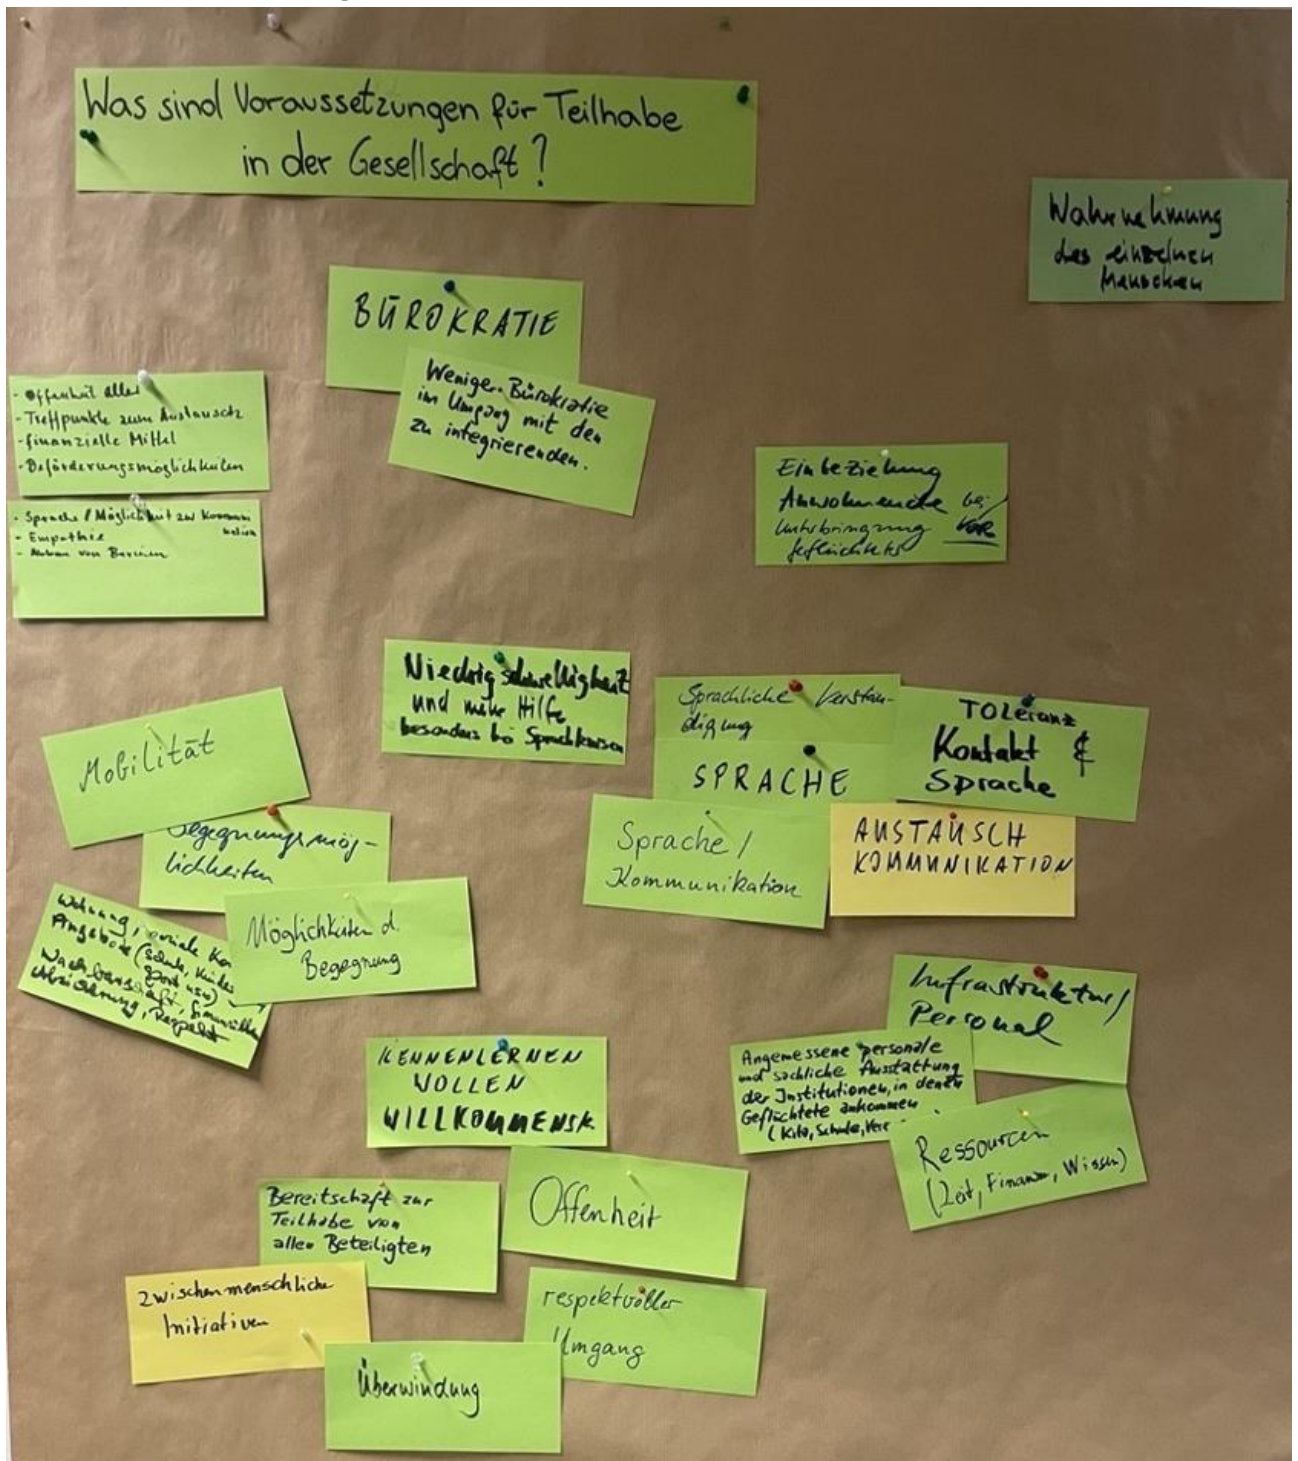 Was sind Voraussetzungen für Teilhabe
in der Gesellschaft?
Wahrnehmung
des einzelnen
Menschen
BÜROKRATIE
Weniger Bürokratie
im Umgang mit den
zu integrierenden.
- Offenheit aller
- Treffpunkte zum Austausch
- finanzielle Mittel
- Beförderungsmöglichkeiten
- Sprache / Möglichkeit zur Kommunikation
- Empathie
- von
Einbeziehung
Anwohnende bei
Unterbringung VOR
Geflüchteter
Niedrigschwelligkeit
und mehr Hilfe
besonders bei Sprachkursen
Sprachliche Verstän-
digung
SPRACHE
TOLeranz
Kontakt &
Sprache
Mobilität
Begegnungsmög-
lichkeiten
Sprache /
Kommunikation
AUSTAUSCH
KOMMUNIKATION
Wohnung, soziale
Angebote (Schule,
Sport usw)
Nachbarschaft,
Respekt
Möglichkeiten d.
Begegnung
Infrastruktur/
Personal
Angemessene personale
und sachliche Ausstattung
der Institutionen, in denen
Geflüchtete ankommen
(Kita, Schule,
Ressourcen
(Zeit, Finanzen, Wissen)
KENNENLERNEN
WOLLEN
WILLKOMMENSK
Bereitschaft zur
Teilhabe von
allen Beteiligten
Offenheit
zwischenmenschliche
Initiativen
respektvoller
Umgang
Überwindung